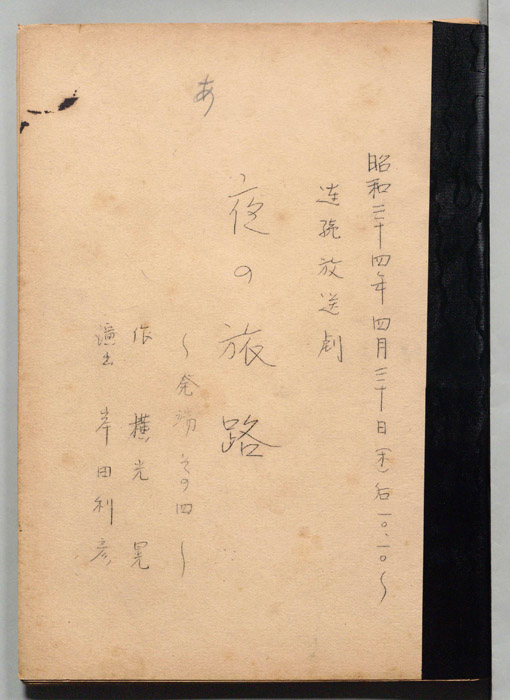 あ
昭和三十四年四月三十日(木)后一〇.一〇〜
連続放送劇
夜の旅路
〜発端その四〜
作 横光晃
演出 岸田利彦